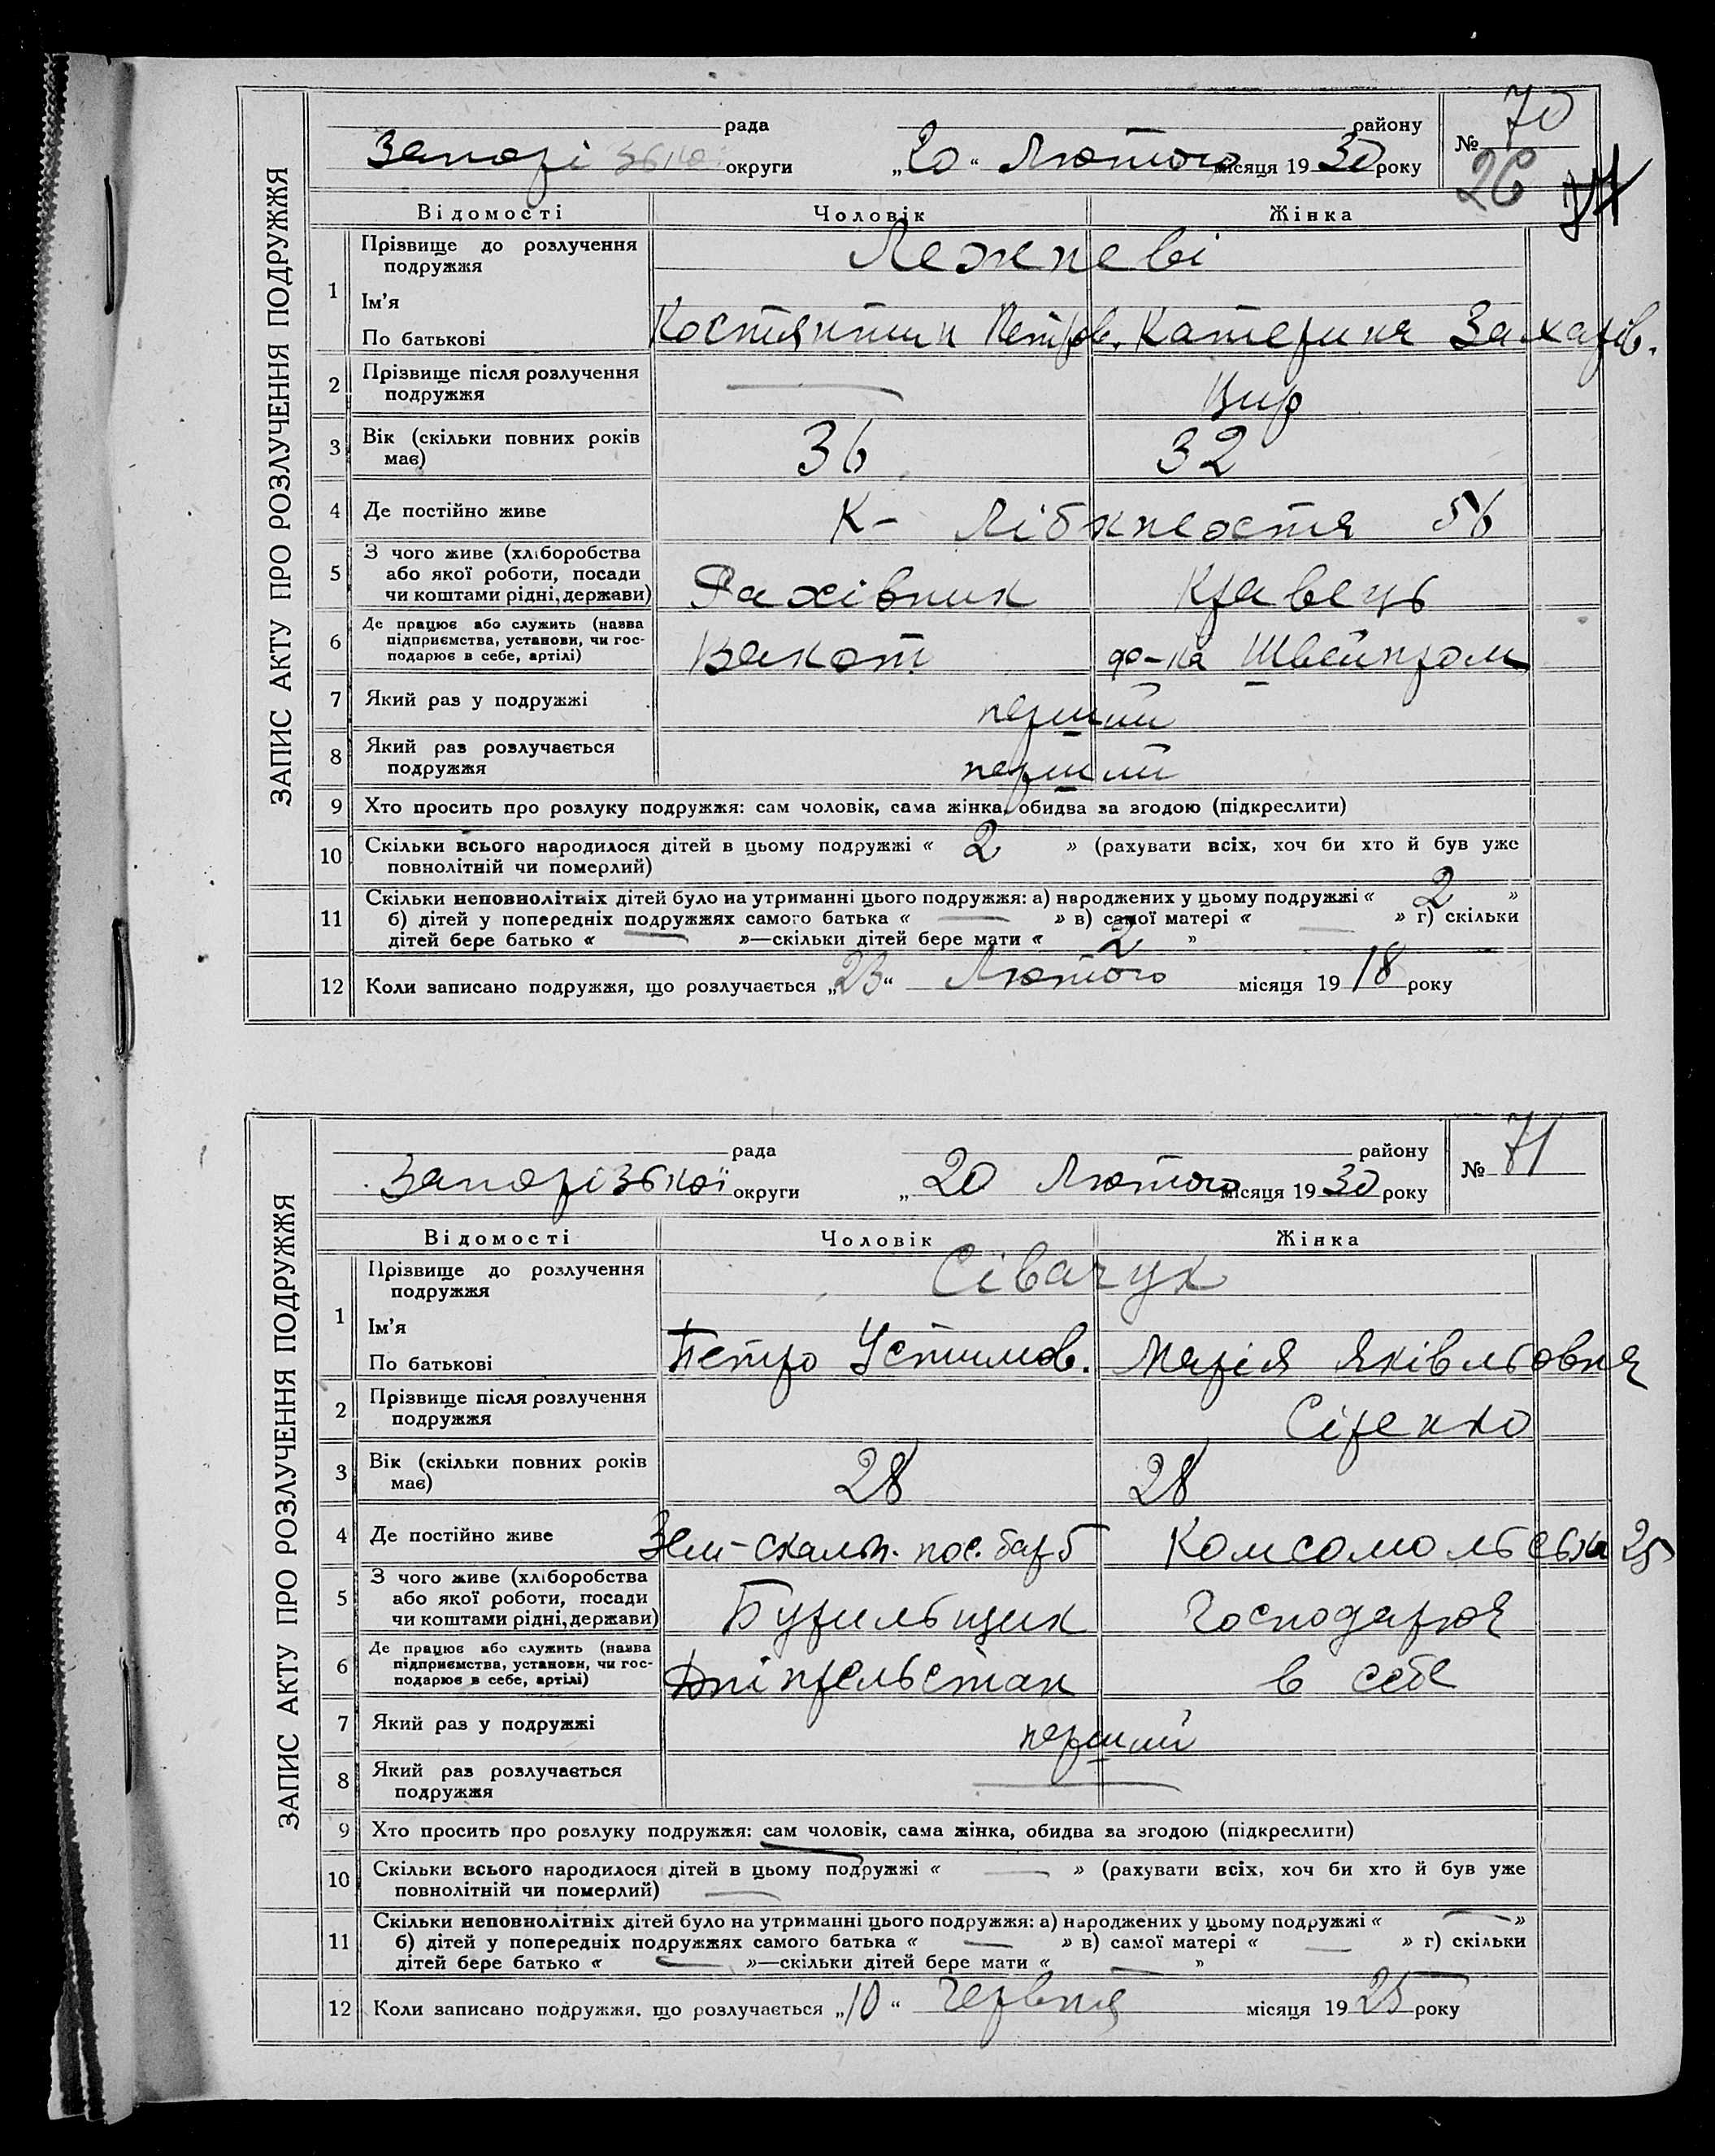 ЗАПИС АКТУ ПРО РОЗЛУЧЕННЯ ПОДРУЖЖЯ
рада району № 70
Запорізької округи „20“ Лютого місяця 1930 року
26
Відомості Чоловік Жінка
1 Прізвище до розлучення подружжя Лежневі
Ім'я
По батькові Костянтин Петров. Катерина Захарів.
2 Прізвище після розлучення подружжя — Цир
3 Вік (скільки повних років має) 36 32
4 Де постійно живе К- Лібкнехта 56
5 З чого живе (хліборобства або якої роботи, посади чи коштами рідні, держави) Рахівник Кравець
6 Де працює або служить (назва підприємства, установи, чи господарює в себе, артілі) Векот ф-ка Швейпром
7 Який раз у подружжі перший
8 Який раз розлучається подружжя перший
9 Хто просить про розлуку подружжя: сам чоловік, сама жінка, обидва за згодою (підкреслити)
10 Скільки всього народилося дітей в цьому подружжі « 2 » (рахувати всіх, хоч би хто й був уже
повнолітній чи померлий)
11 Скільки неповнолітніх дітей було на утриманні цього подружжя: а) народжених у цьому подружжі « 2 »
б) дітей у попередніх подружжях самого батька « — » в) самої матері « — » г) скільки
дітей бере батько « — »—скільки дітей бере мати « 2 »
12 Коли записано подружжя, що розлучається „23“ Лютого місяця 1918 року
ЗАПИС АКТУ ПРО РОЗЛУЧЕННЯ ПОДРУЖЖЯ
рада району № 71
Запорізької округи „20 Лютого місяця 1930 року
Відомості Чоловік Жінка
1 Прізвище до розлучення подружжя Сівачук
Ім'я
По батькові Петро Устимов. Марія Яківльовна
2 Прізвище після розлучення подружжя Сіренко
3 Вік (скільки повних років має) 28 28
4 Де постійно живе Зем-скальн. пос. Комсомольська 25
5 З чого живе (хліборобства або якої роботи, посади чи коштами рідні, держави) Бурильщик Господарює
6 Де працює або служить (назва підприємства, установи, чи господарює в себе, артілі) Дніпрельстан в себе
7 Який раз у подружжі перший
8 Який раз розлучається подружжя —
9 Хто просить про розлуку подружжя: сам чоловік, сама жінка, обидва за згодою (підкреслити)
10 Скільки всього народилося дітей в цьому подружжі « — » (рахувати всіх, хоч би хто й був уже
повнолітній чи померлий) —
11 Скільки неповнолітніх дітей було на утриманні цього подружжя: а) народжених у цьому подружжі « — »
б) дітей у попередніх подружжях самого батька « — » в) самої матері « — » г) скільки
дітей бере батько « — »—скільки дітей бере мати « — »
12 Коли записано подружжя, що розлучається „10“ Червня місяця 1925 року